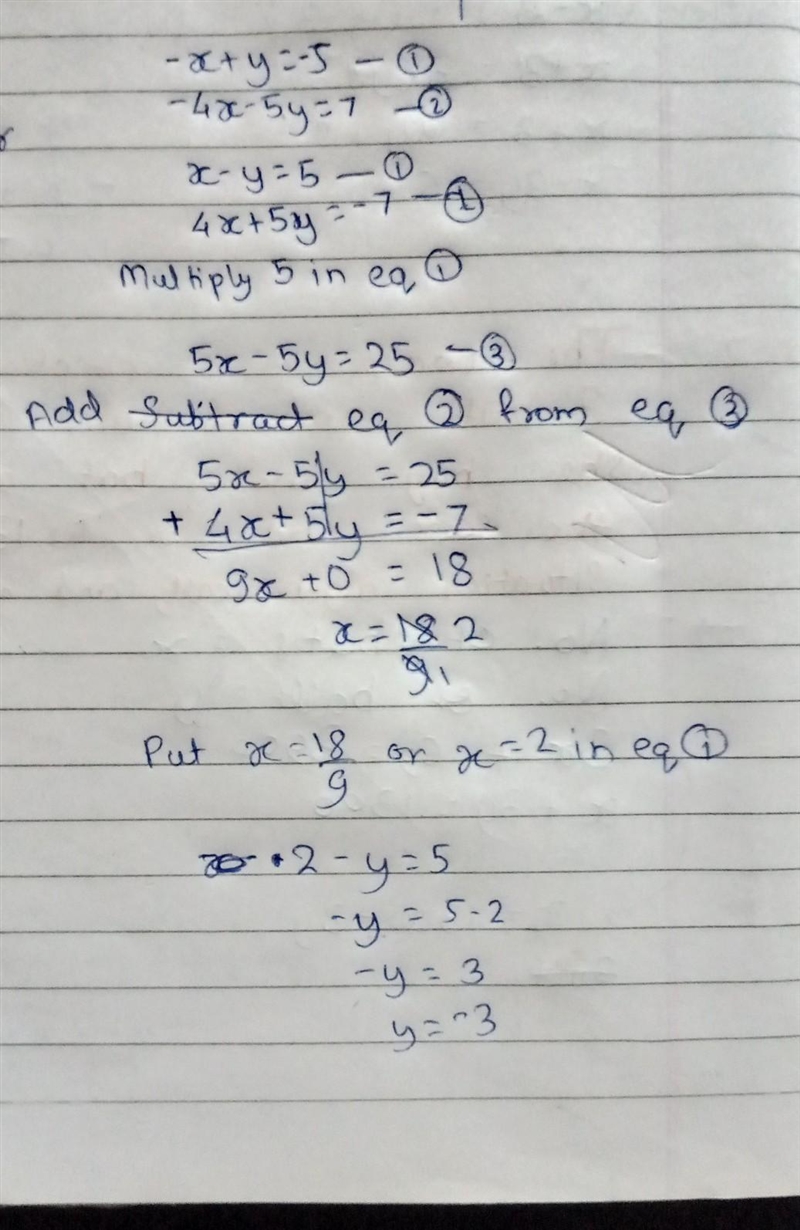 -x+y=-5 — ①
-4x-5y=7 — ②
x-y=5 — ①
4x+5y=-7 — ②
Multiply 5 in eq ①
5x-5y=25 — ③
Add Subtract eq ② from eq ③
5x-5y = 25
+ 4x+5y = -7
9x+0 = 18
x=18 2
9 1
Put x=18 or x=2 in eq ①
9
2-y=5
-y = 5-2
-y = 3
y=-3